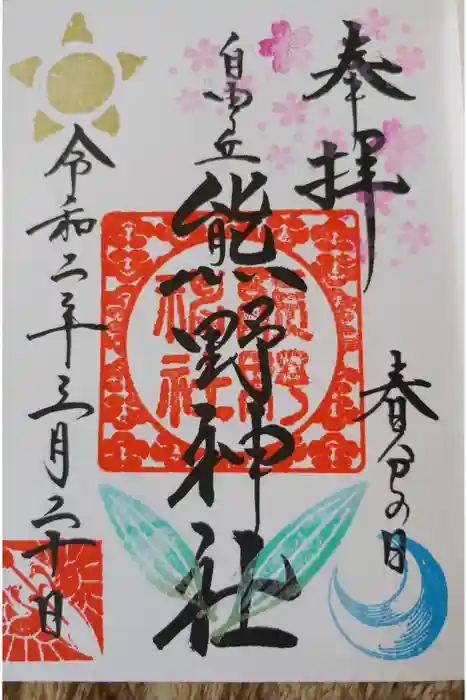 奉拝
春分の日
自由ケ丘
熊野神社
熊野神社
令和二年三月二十日